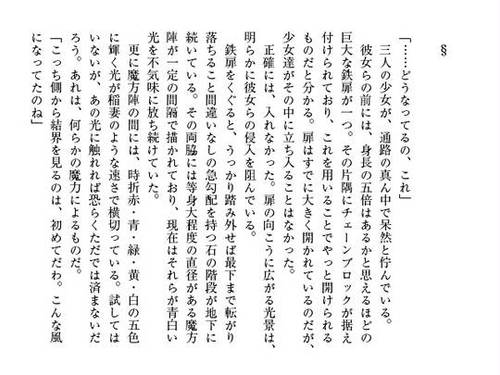 §
「……どうなってるの、これ」
三人の少女が、通路の真ん中で呆然と佇んでいる。
彼女らの前には、身長の五倍はあるかと思えるほどの
巨大な鉄扉が一つ。その片隅にチェーンブロックが据え
付けられており、これを用いることでやっと開けられる
ものだと分かる。扉はすでに大きく開かれているのだが、
少女達がその中に立ち入ることはなかった。
正確には、入れなかった。扉の向こうに広がる光景は、
明らかに彼女らの侵入を阻んでいる。
鉄扉をくぐると、うっかり踏み外せば最下まで転がり
落ちること間違いなしの急勾配を持つ石の階段が地下に
続いている。その両脇には等身大程度の直径がある魔方
陣が一定の間隔で描かれており、現在はそれらが青白い
光を不気味に放ち続けていた。
更に魔方陣の間には、時折赤・青・緑・黄・白の五色
に輝く光が稲妻のような速さで横切っている。試しては
いないが、あの光に触れれば恐らくただでは済まないだ
ろう。あれは、何らかの魔力によるものだ。
「こっち側から結界を見るのは、初めてだわ。こんな風
になってたのね」